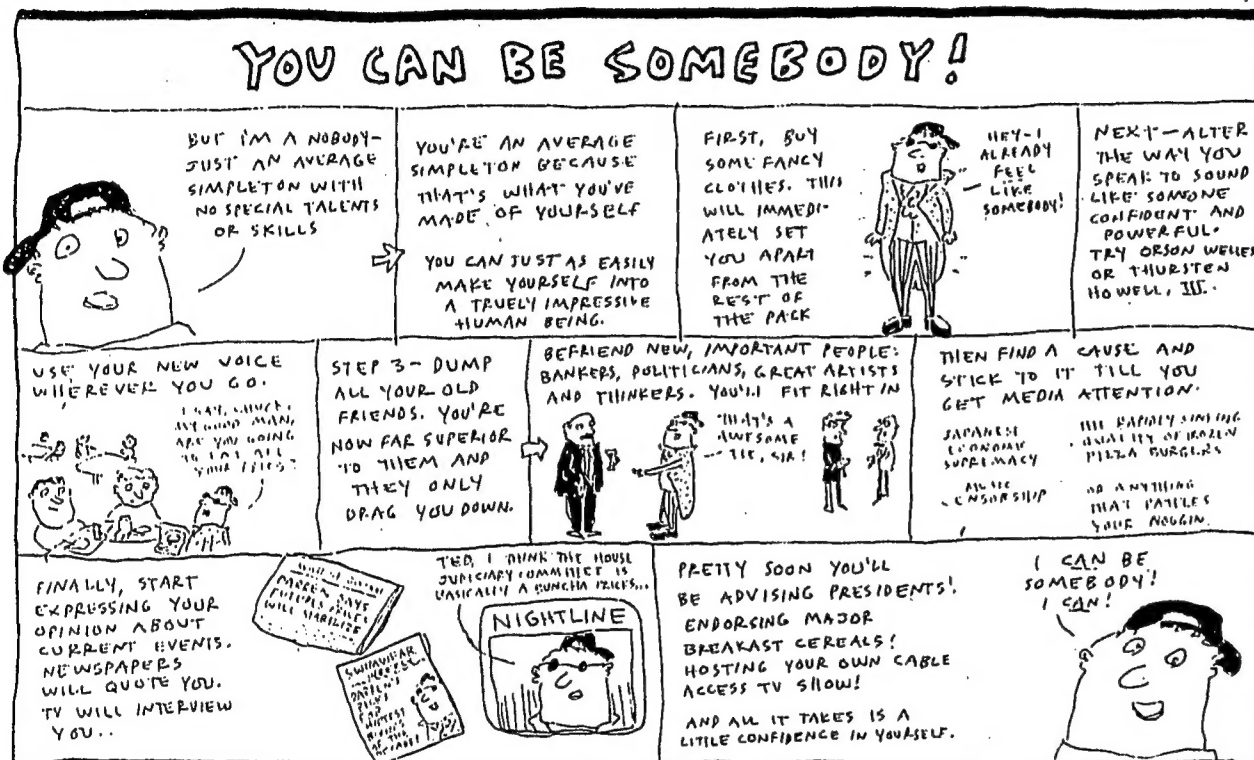 YOU CAN BE SOMEBODY!
BUT I'M A NOBODY-
JUST AN AVERAGE
SIMPLETON WITH
NO SPECIAL TALENTS
OR SKILLS
YOU'RE AN AVERAGE
SIMPLETON BECAUSE
THAT'S WHAT YOU'VE
MADE OF YOURSELF
YOU CAN JUST AS EASILY
MAKE YOURSELF INTO
A TRUELY IMPRESSIVE
HUMAN BEING.
FIRST, BUY
SOME FANCY
CLOTHES. THIS
WILL IMMEDI-
ATELY SET
YOU APART
FROM THE
REST OF
THE PACK
HEY-I
ALREADY
FEEL
LIKE
SOMEBODY!
NEXT-ALTER
THE WAY YOU
SPEAK TO SOUND
LIKE SOMEONE
CONFIDENT AND
POWERFUL.
TRY ORSON WELLES
OR THURSTEN
HOWELL, III.
USE YOUR NEW VOICE
WHEREVER YOU GO.
I SAY, CHUCK,
MY GOOD MAN,
ARE YOU GOING
TO EAT ALL
YOUR FRIES?
STEP 3- DUMP
ALL YOUR OLD
FRIENDS. YOU'RE
NOW FAR SUPERIOR
TO THEM AND
THEY ONLY
DRAG YOU DOWN.
BEFRIEND NEW, IMPORTANT PEOPLE:
BANKERS, POLITICIANS, GREAT ARTISTS
AND THINKERS. YOU'LL FIT RIGHT IN
THAT'S A
AWESOME
TIE, SIR!
THEN FIND A CAUSE AND
STICK TO IT TILL YOU
GET MEDIA ATTENTION.
JAPANESE
ECONOMIC
SUPREMACY
MUSIC
CENSORSHIP
THE RAPIDLY SINKING
QUALITY OF FROZEN
PIZZA BURGERS
OR ANYTHING
THAT RATTLES
YOUR NOGGIN.
FINALLY, START
EXPRESSING YOUR
OPINION ABOUT
CURRENT EVENTS.
NEWSPAPERS
WILL QUOTE YOU.
TV WILL INTERVIEW
YOU..
DARREN SAYS
FUTURES
WILL STABILIZE
SWIMWEAR
DARREN'S
PICKS
FOR
HOTTEST
OF THE
DECADE!
TED, I THINK THE HOUSE
JUDICIARY COMMITTEE IS
BASICALLY A BUNCHA PRICKS...
NIGHTLINE
PRETTY SOON YOU'LL
BE ADVISING PRESIDENTS!
ENDORSING MAJOR
BREAKAST CEREALS!
HOSTING YOUR OWN CABLE
ACCESS TV SHOW!
AND ALL IT TAKES IS A
LITTLE CONFIDENCE IN YOURSELF.
I CAN BE
SOMEBODY!
I CAN!